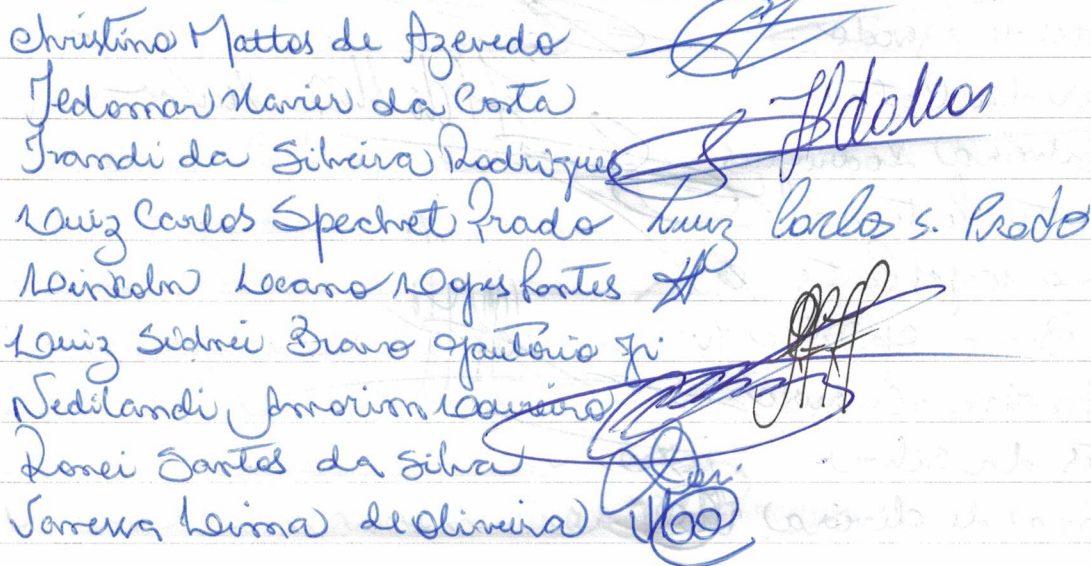 Christino Mattos de Azevedo
Jedomar Xavier da Costa
Irandi da Silveira Rodrigues
Luiz Carlos Spechet Prado Luiz Carlos S. Prado
Lincoln Lopes Fontes
Luiz Sidnei Bravo Gautério Jr.
Nedilandi Amorim Loureiro
Ronei Santos da Silva
Vanessa Leima de Oliveira